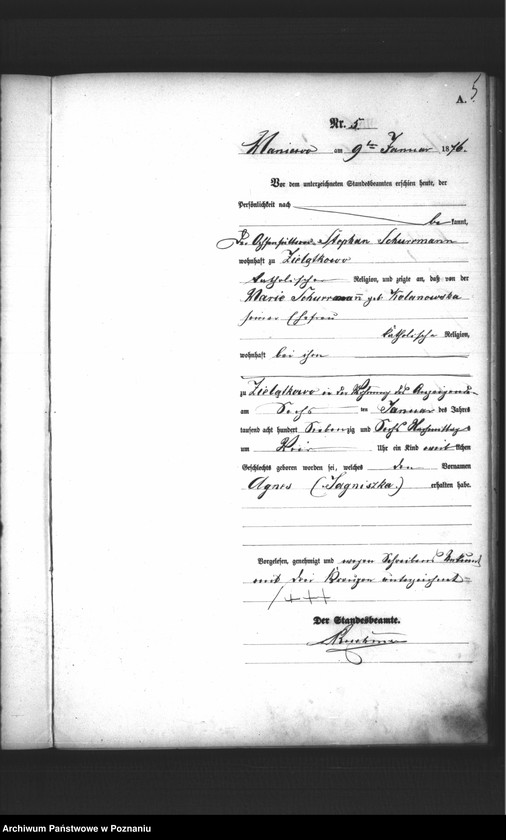 A. 5
Nr. 5
Maniewo am 9ten Januar 1876.
Vor dem unterzeichneten Standesbeamten erschien heute, der
Persönlichkeit nach
be kannt,
der Stephan Schurmann
wohnhaft zu Zielątkowo
katholischer Religion, und zeigte an, daß von der
Marie Schurmann geb
seiner Ehefrau
katholische Religion,
wohnhaft bei ihm
zu Zielątkowo in der Wohnung des Anzeigenden
am Sechs ten Januar des Jahres
tausend acht hundert Siebenzig und Sechs Nachmittags
um Uhr ein Kind weib lichen
Geschlechts geboren worden sei, welches den Vornamen
Agnes (Jagniszka) erhalten habe.
Vorgelesen, genehmigt und wegen Schreibens Unkund
mit drei Kreuzen unterzeichnet
+++
Der Standesbeamte.
Archiwum Państwowe w Poznaniu